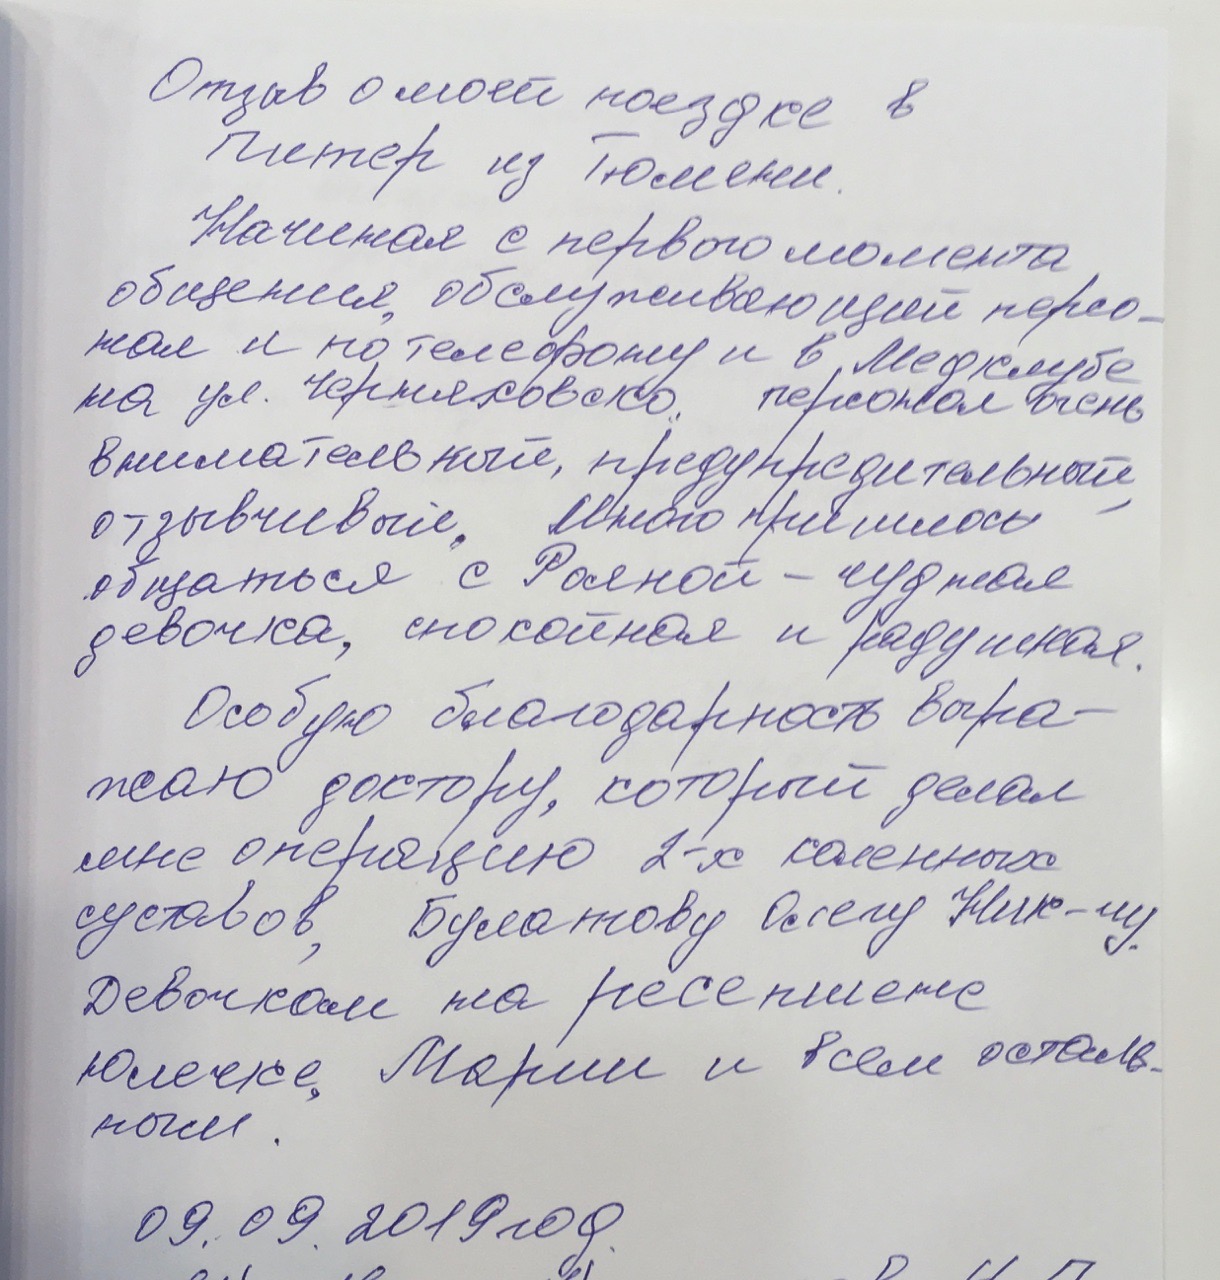 Отзыв о моей поездке в
Питер из Тюмени.
Начиная с первого момента
общения, обслуживающий персо-
нал и по телефону и в Медклубе
на ул. Черняховско. персонал очень
внимательный, предупредительный,
отзывчивый. Много пришлось
общаться с - чудная
девочка, спокойная и радушная.
Особую благодарность выра-
жаю доктору, который делал
мне операцию 2-х коленных
суставов, Булатову Олегу Ник-чу.
Девочкам на ресепшене
Юлечке, Марии и всем осталь-
ным.
09.09.2019 год.